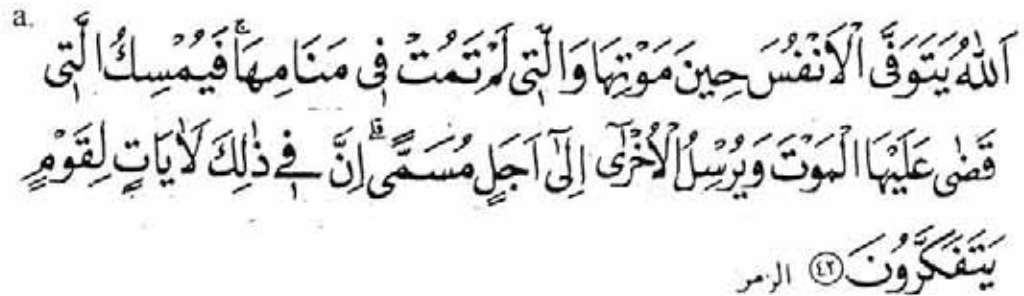 a.
اَللّٰهُ يَتَوَفَّى الْاَنْفُسَ حِينَ مَوْتِهَا وَالَّتِى لَمْ تَمُتْ فِى مَنَامِهَاۚ فَيُمْسِكُ الَّتِى
قَضٰى عَلَيْهَا الْمَوْتَ وَيُرْسِلُ الْاُخْرٰٓى اِلٰٓى اَجَلٍ مُسَمًّىۗ اِنَّ فِى ذٰلِكَ لَاٰيَاتٍ لِقَوْمٍ
يَتَفَكَّرُونَ ﴿٤٢﴾ الزمر